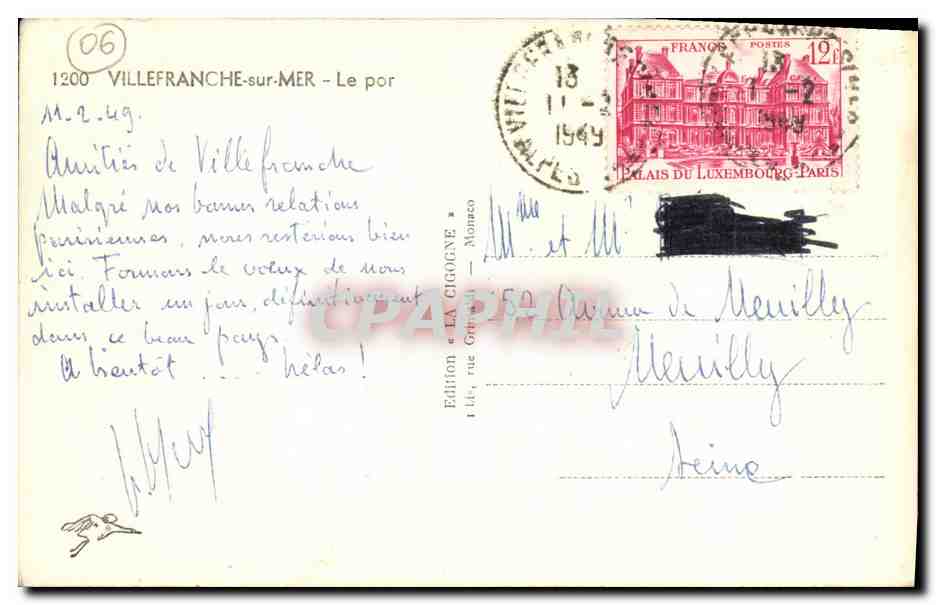 06
1200 VILLEFRANCHE-sur-MER - Le por
11-2-49.
Amitiés de Villefranche
Malgré nos bonnes relations
parisiennes, nous resterions bien
ici. Formons le voeux de nous
installer un jour, définitivement
dans ce beau pays.
A bientôt .... hélas !
Edition « LA CIGOGNE »
1 bis, rue Grimaldi - Monaco
FRANCE POSTES 12f
PALAIS DU LUXEMBOURG-PARIS
VILLEFRANCHE
13
11 -2
1949
ALPES
13
1 -2
1949
Mme et Mr
152 Avenue de Neuilly
Neuilly
Seine
CPAPHIL